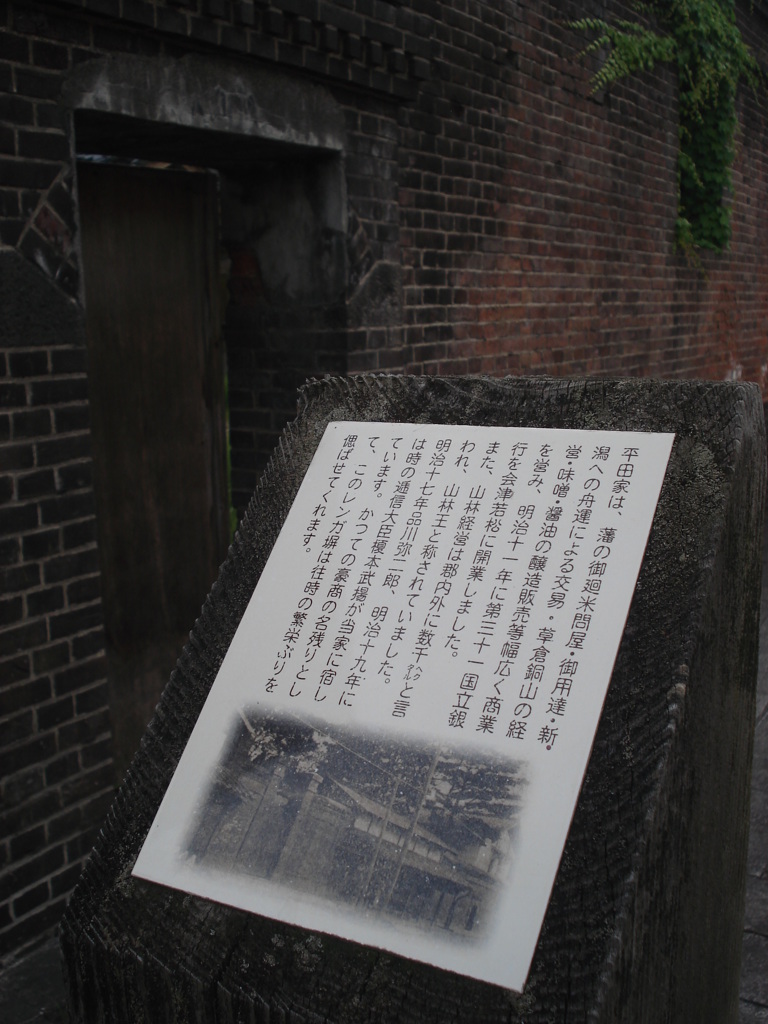 平田家は、藩の御廻米問屋・御用達・新・
潟への舟運による交易・草倉銅山の経
営・味噌・醤油の醸造販売等幅広く商業
を営み、明治十一年に第三十一国立銀
行を会津若松に開業しました。
また、山林経営は郡内外に数千ヘクタルと言
われ、山林王と称されていました。
明治十七年品川弥二郎、明治十九年に
は時の逓信大臣榎本武揚が当家に宿し
ています。かつての豪商の名残りとし
て、このレンガ塀は往時の繁栄ぶりを
偲ばせてくれます。